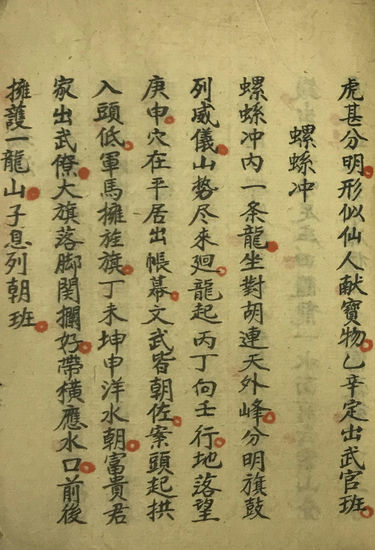 虎甚分明形似仙人献寶物乙辛定出武官班
螺螄冲
螺螄冲內一条龍坐對胡連天外峰分明旗鼓
列威儀山勢尽來廻龍起丙丁向壬行地落望
庚申穴在平居出帳幕文武皆朝佐案頭起拱
入頭低軍馬擁旌旗丁未坤申洋水朝富貴君
家出武僚大旗落脚関攔好帶橫應水口前後
擁護一龍山子息列朝班